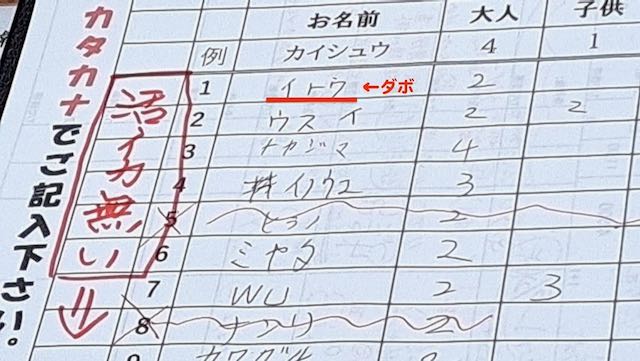 カタカナでご記入下さい。
活イカ無い
⇓
お名前 大人 子供
例 カイシュウ 4 1
1 イトウ ←ダボ 2
2 ウスイ 2 2
3 ナカジマ 4
4 井イノウエ 3
5 ヒラノ 2
6 ミヤタ 2
7 WU 2 3
8 2